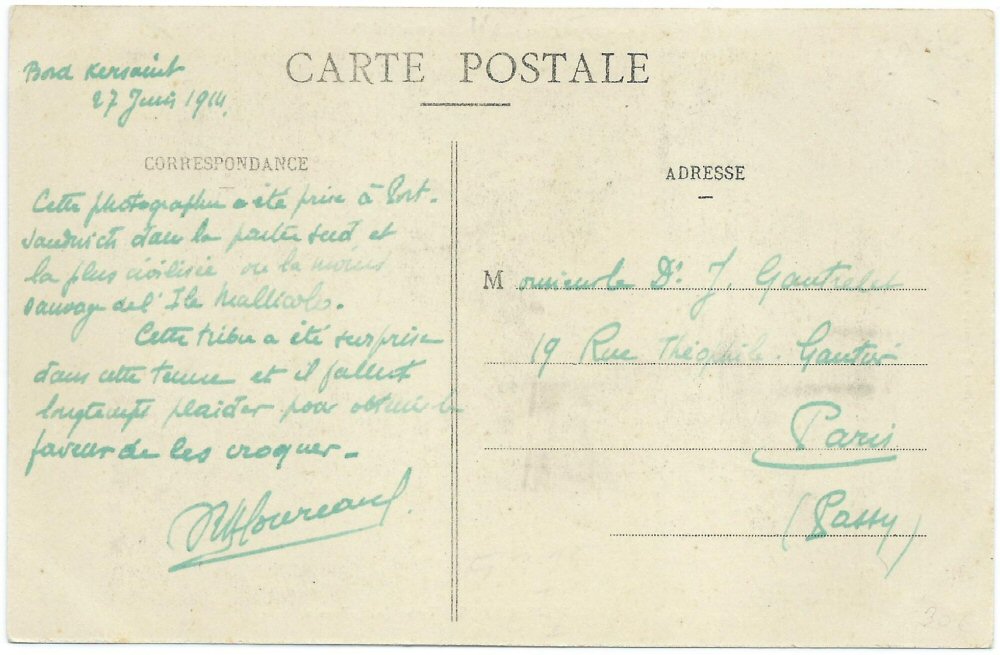 CARTE POSTALE
Bord Kersaint
27 Juin 1914.
CORRESPONDANCE
Cette photographie a été prise à Port-
Sandwich dans la partie sud et
la plus civilisée ou la moins
sauvage de l'Ile Mallicolo.
Cette tribu a été surprise
dans cette tenue et il fallut
longtemps plaider pour obtenir la
faveur de les croquer -
ADRESSE
Monsieur le Dr. J. Gautrelet
19 Rue Théophile-Gautier
Paris
(Passy)
30€